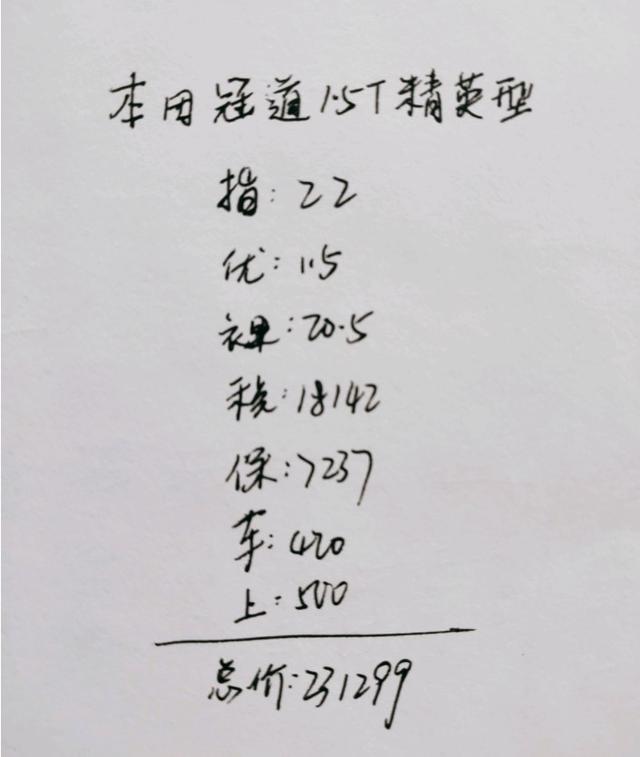 本田冠道1.5T精英型
指:22
优:1.5
裸:20.5
税:18142
保:7237
车:420
上:500
总价:231299